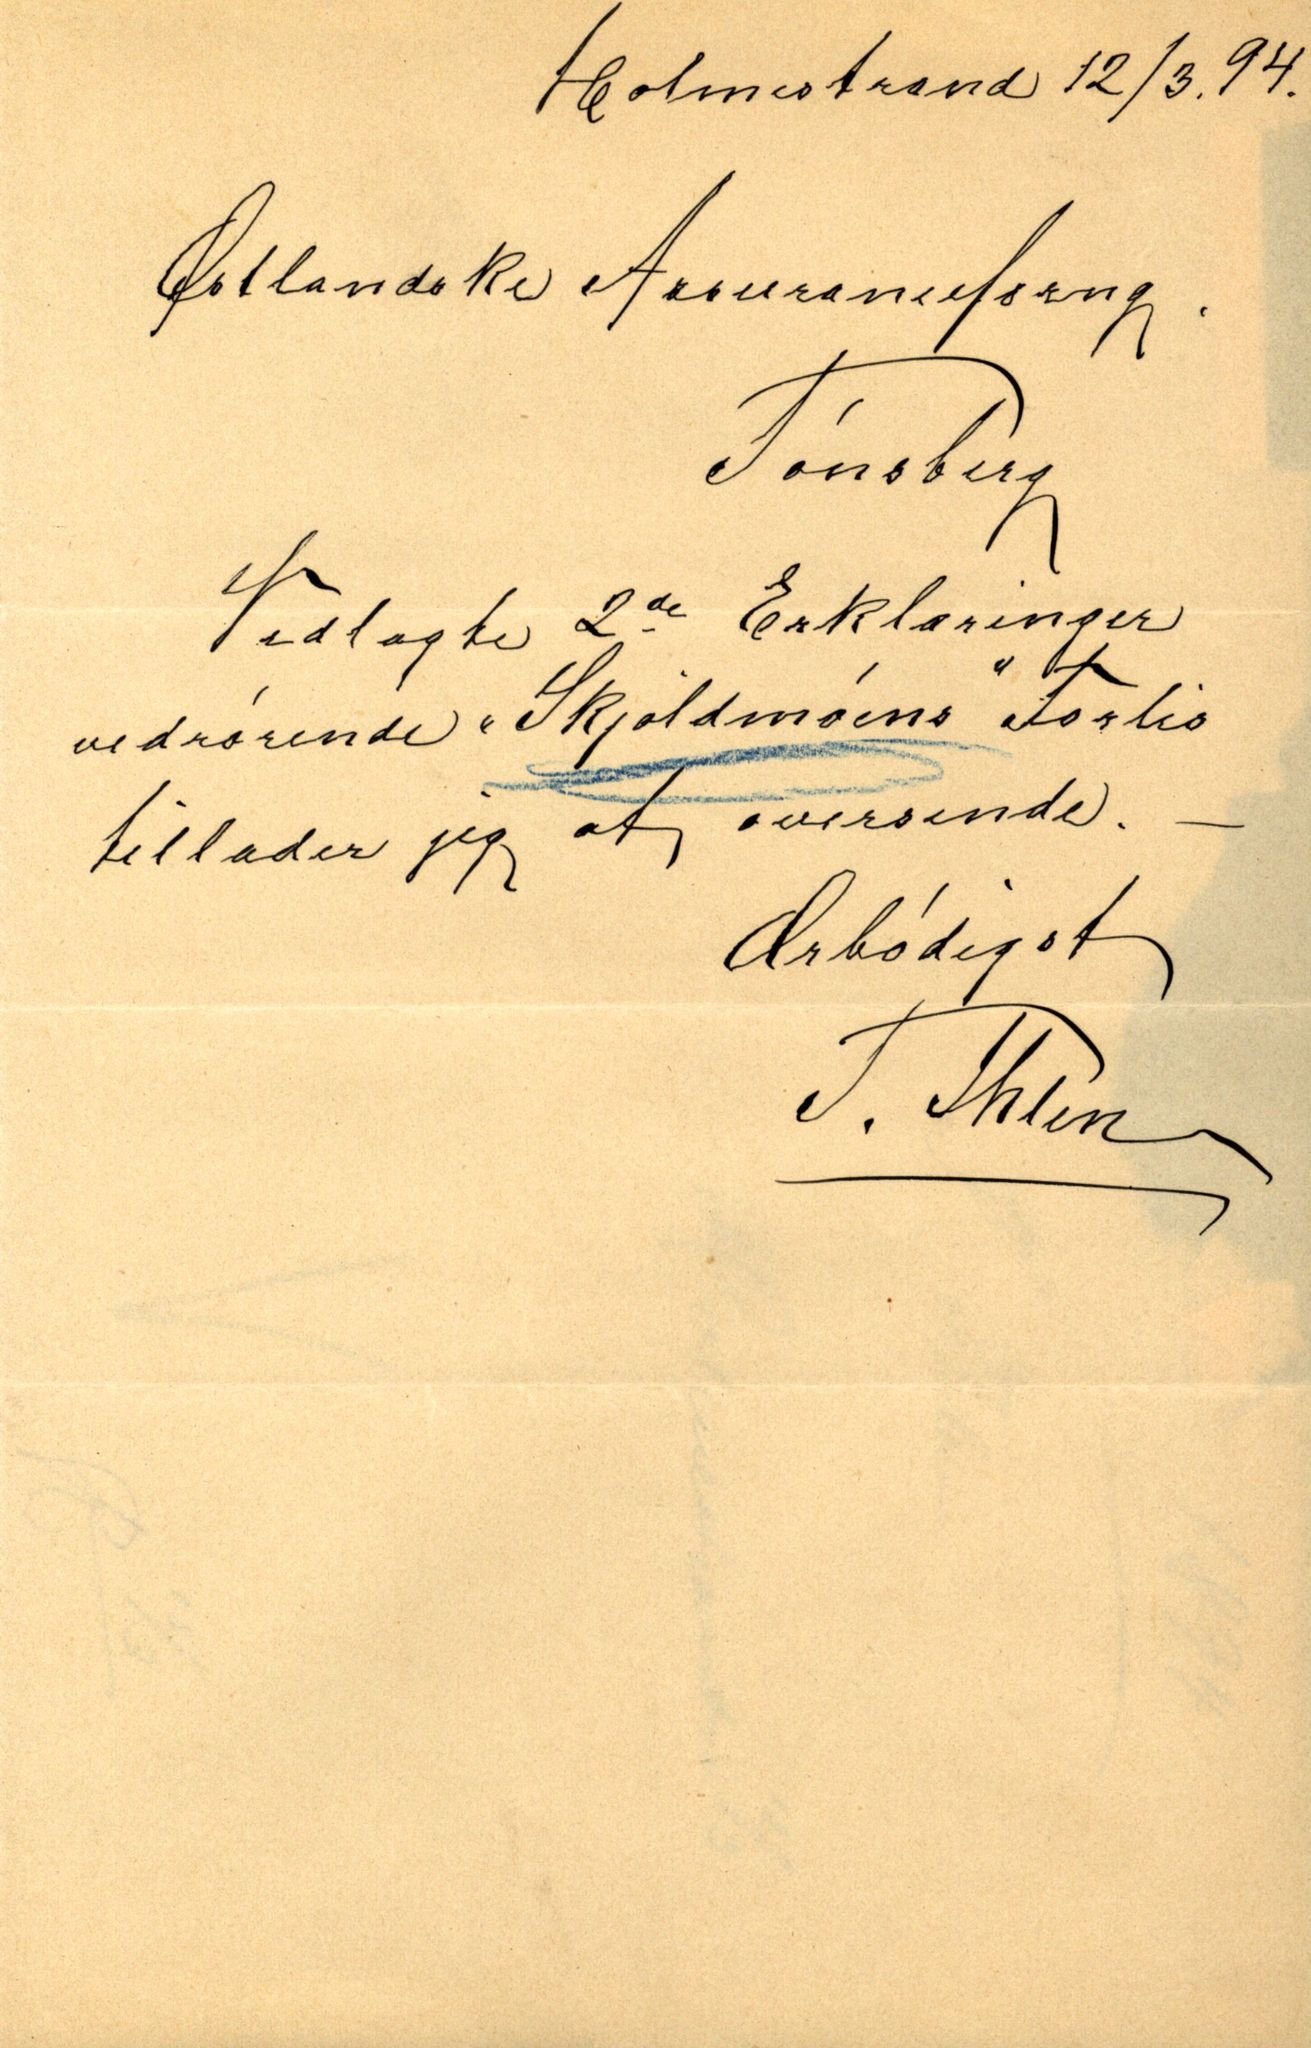 Holmestrand 12/3. 94.
Østlandske Assuranceforng.
Tónsberg
Vedlagte 2de Erklaringer
vedrórende "Skjóldmóens" Forlis
tillader jeg at oversende. —
Ærbódigst
T. Ihlen